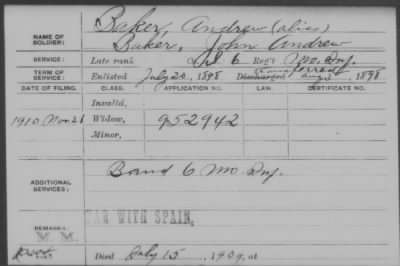 NAME OF SOLDIER: Baker, Andrew (alias)
Baker, John Andrew
SERVICE: Late rank 6 Reg't Mo. Inf.
TERM OF SERVICE: Enlisted July 20, 1898 Discharged transferred Aug 1898
DATE OF FILING. CLASS. APPLICATION NO. LAW. CERTIFICATE NO.
Invalid,
1910 Nov. 28 Widow, 952942
Minor,
ADDITIONAL SERVICES: Band 6 Mo. Inf.
WAR WITH SPAIN,
REMARKS:
M. M.
Died July 15, 1909, at